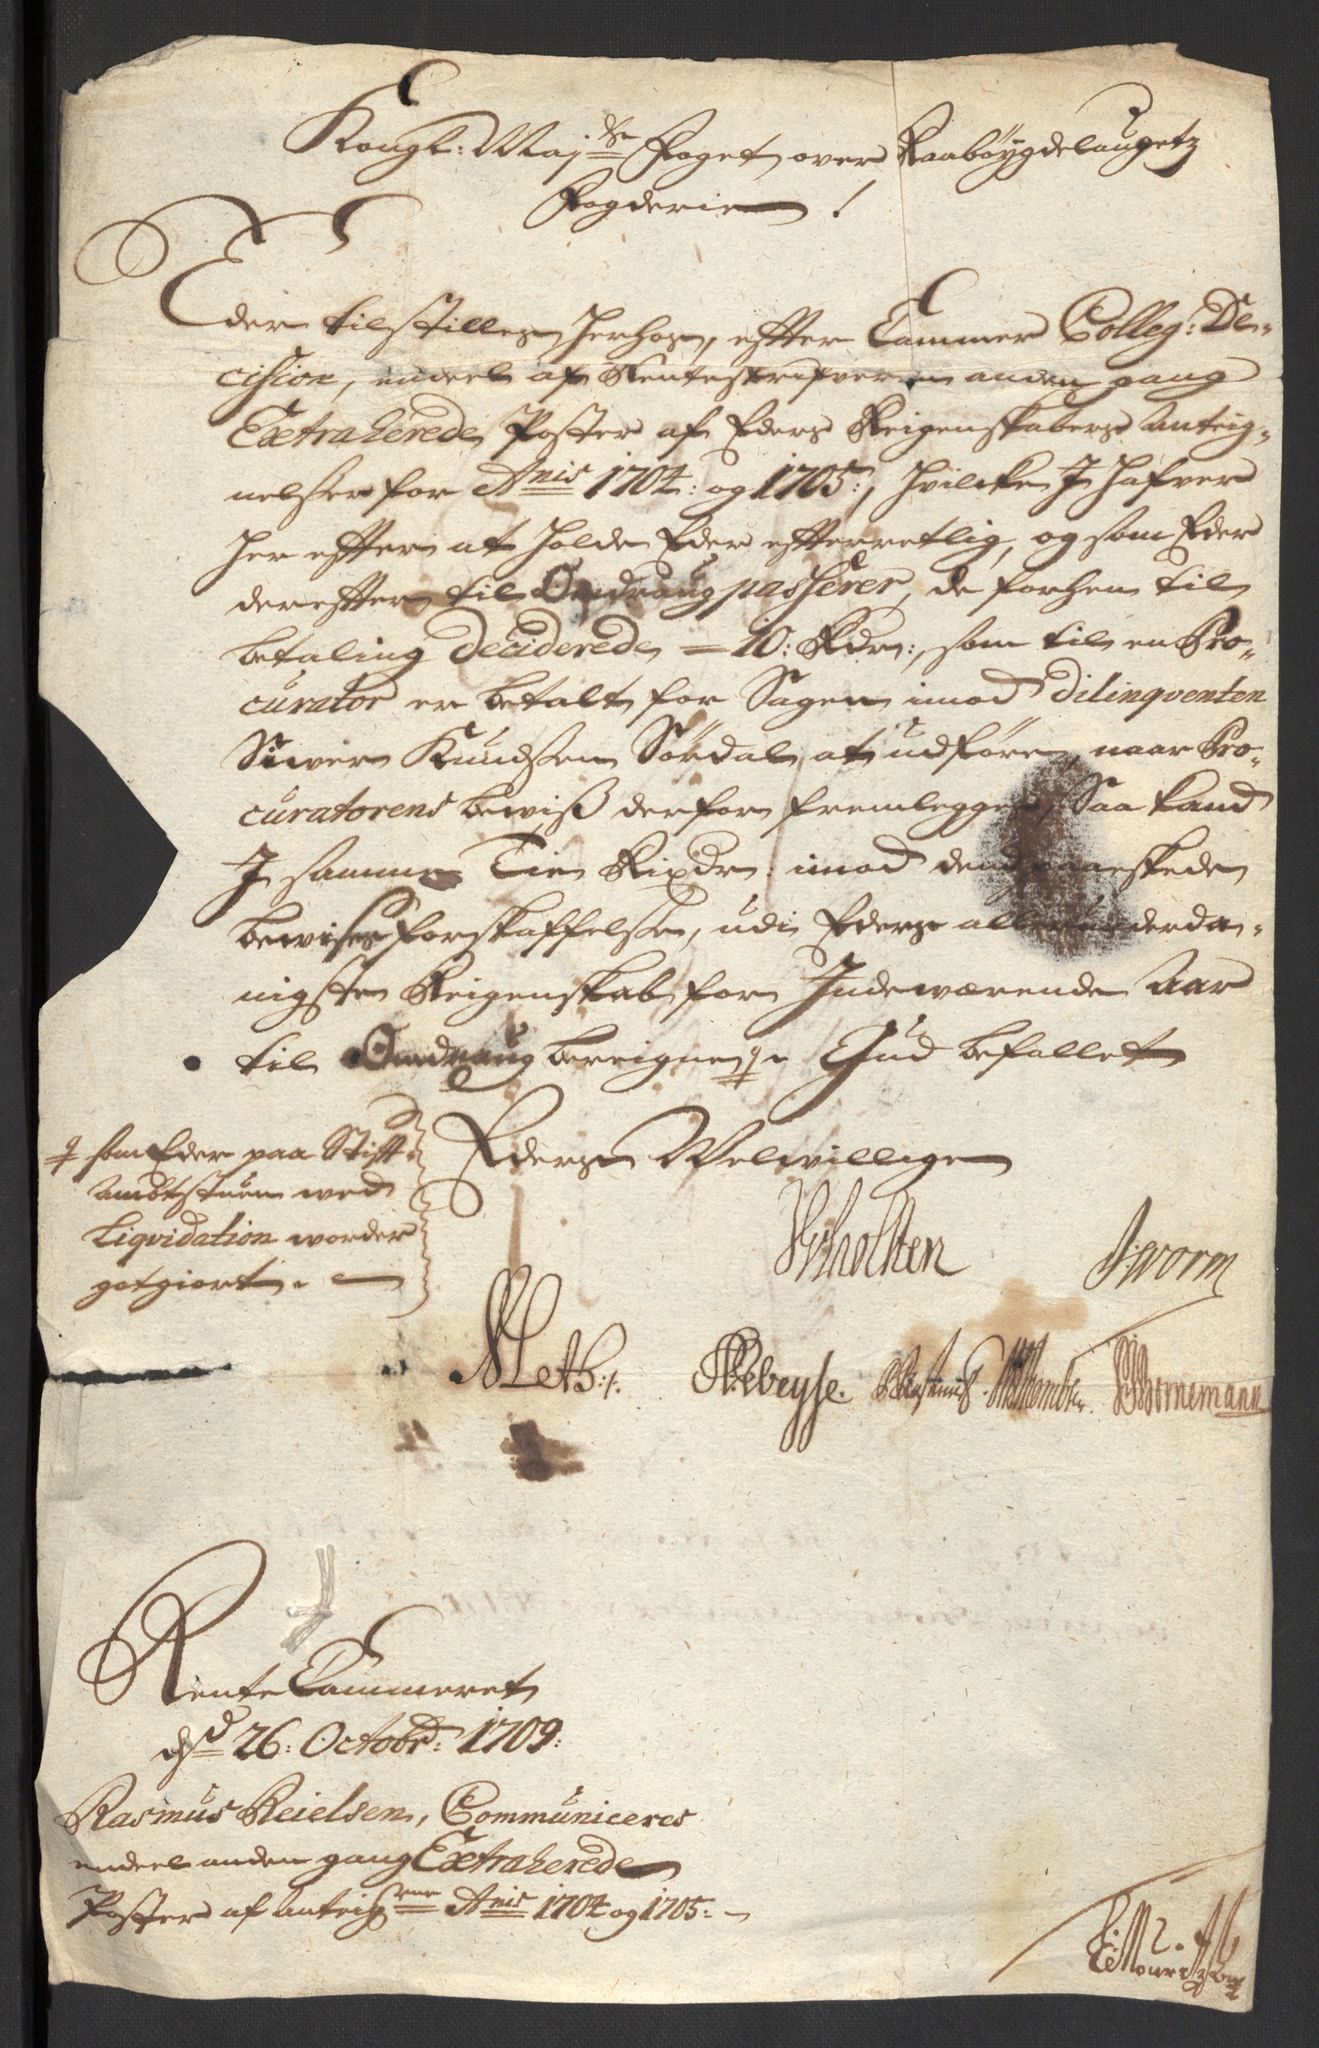 Kongl: Maj:ts Foget over Raabøygdelaugetz
Fogderie !
Eder tilstilles herhos, effter Cammer Colleg: De-
cision, endeel af Renteskrifveren anden gang
Extraherede Poster af Eders Reigenskabers Anteig-
nelser for Anis 1704: og 1705:, hvilcke I hafver
her effter at holde Eder effterretlig, og som Eder
dereffter til Omdraug passerer, de forhen til
betaling deciderede = 10: Rdr:, som til en Pro-
curator er betalt for Sagen imod dilinqventen
Siver Knudsen Sördal at udföre, naar Pro-
curatorens bewiß derfor fremlegges, Saa kand
I samme Tie Rixdr: imod
bewises forskaffelse, udi Eders allerunderda-
nigste Reigenskab for Indeværende Aar
til Omdraug bereigne # Gud befallet
# som Eder paa Stift
Ambtstuen wed
Liqvidation worder
gotgiort.
Eders Velvillige
Scholten Worm
Meth:
Bornemann
Rente Cammeret
dend 26: Octobr: 1709:
Rasmus Keielsen, Communiceres
endeel anden gang Extraherede
Poster af Anteigrne Anis 1704 og 1705: